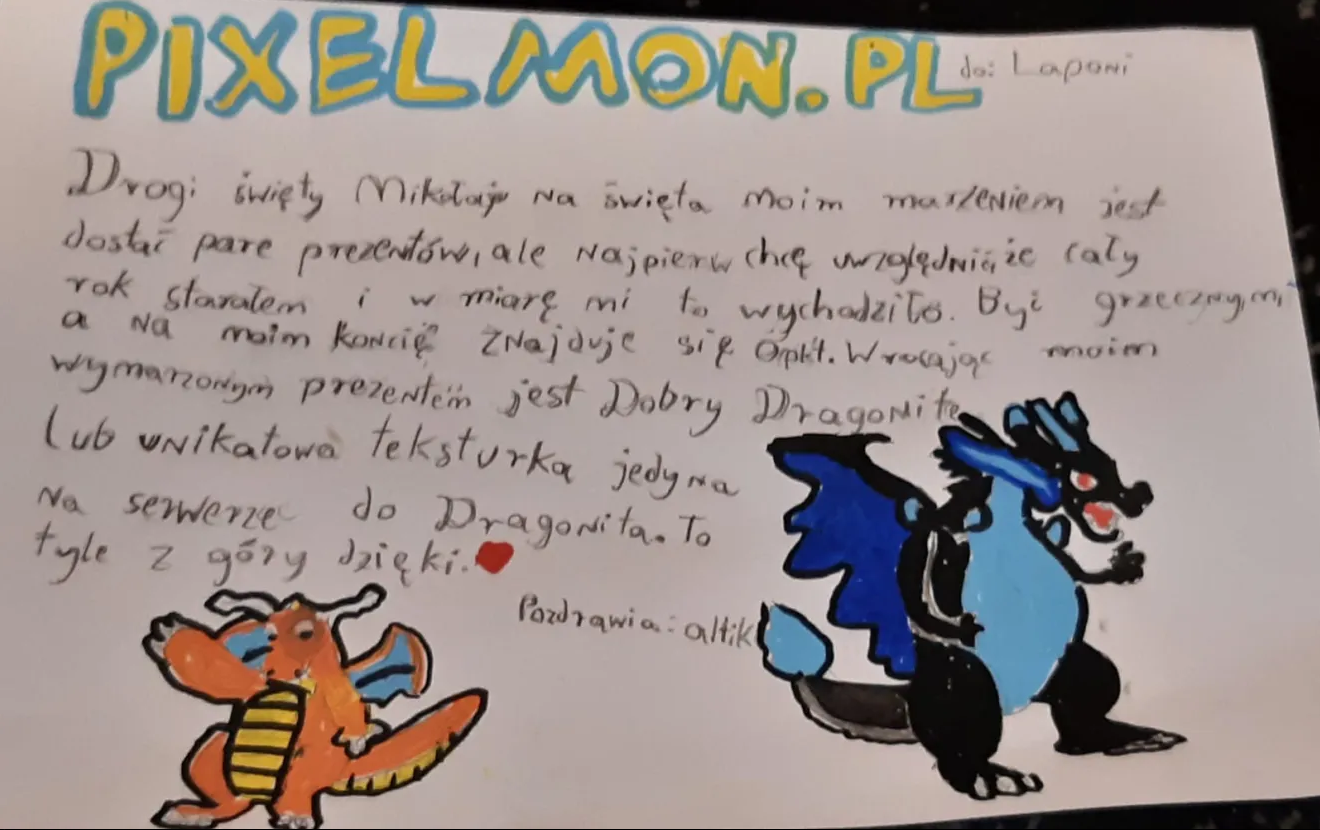 PIXELMON.PL do: Laponi
Drogi święty Mikołaju na święta moim marzeniem jest
dostać pare prezentów, ale najpierw chcę uwzględnić, że cały
rok starałem i w miarę mi to wychodziło. Być grzecznym,
a na moim koncię znajduje się 0pkt. Wracając moim
wymarzonym prezentem jest Dobry Dragonite
lub unikatowa teksturka jedyna
na serwerze do Dragonita. To
tyle z góry dzięki.
Pozdrawia: altik